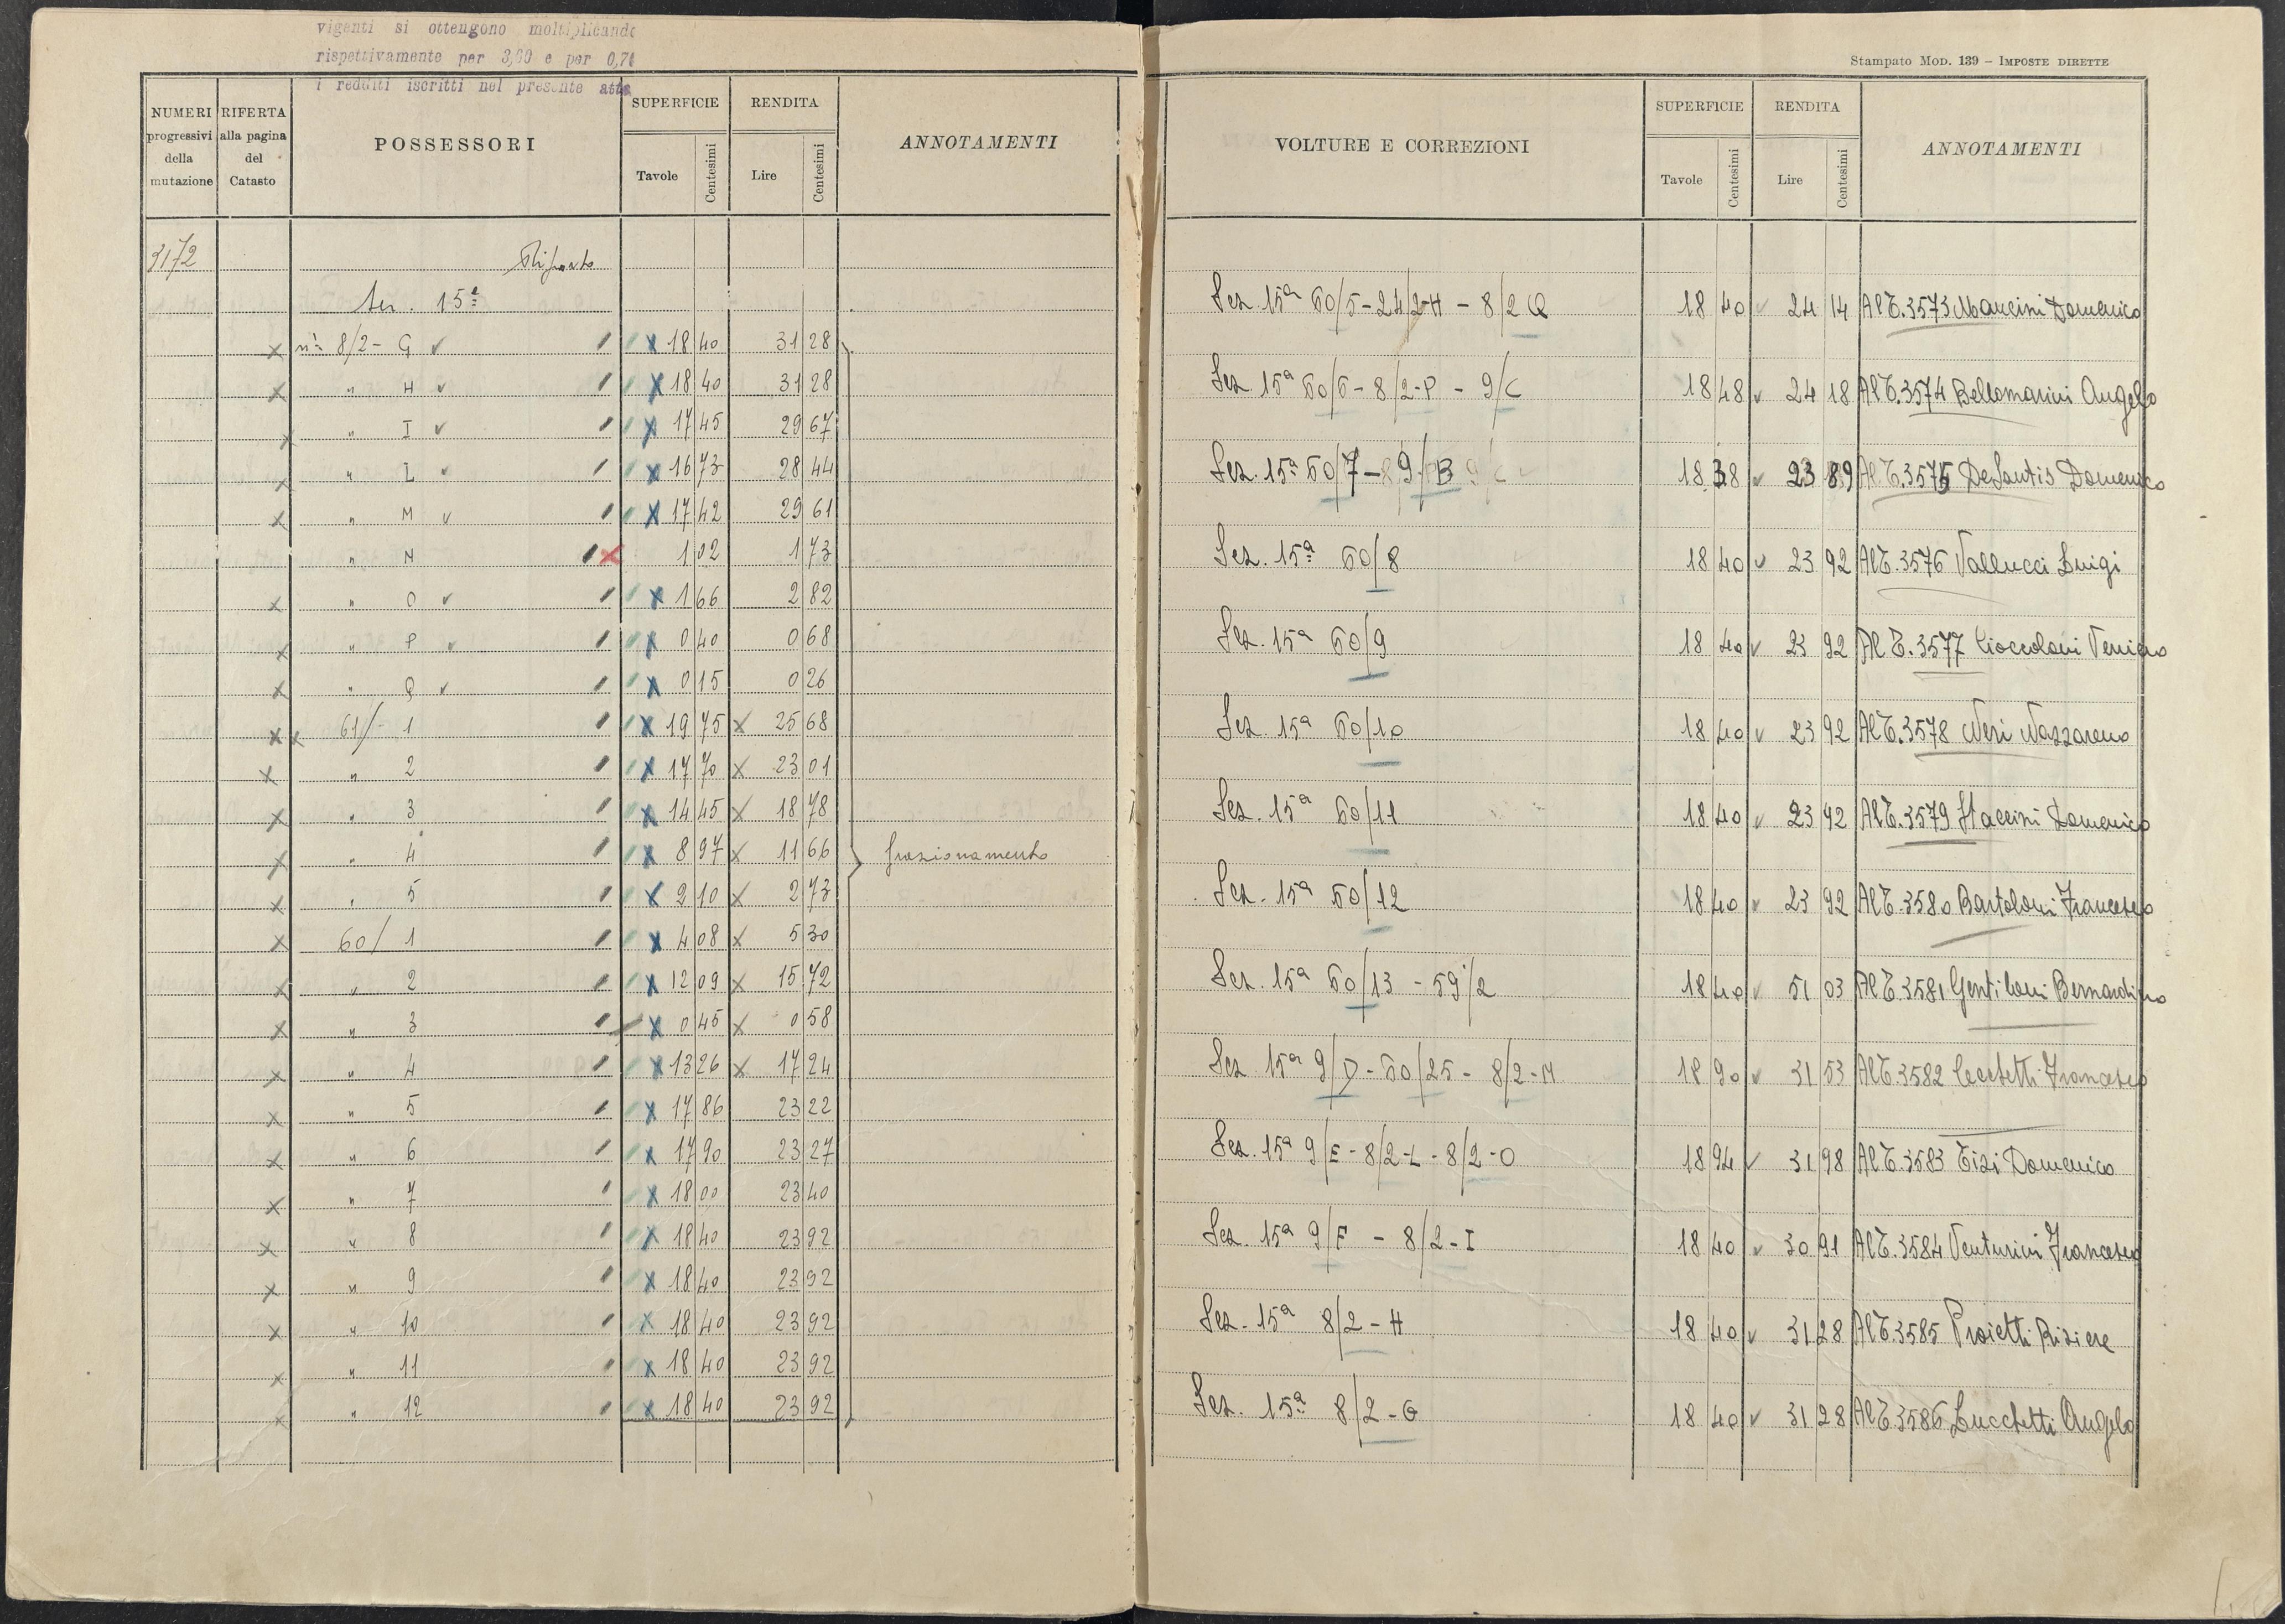 vigenti si ottengono moltiplicando
rispettivamente per 3,60 e per 0,70
i redditi iscritti nel presente atto
NUMERI progressivi della mutazione | RIFERTA alla pagina del Catasto | POSSESSORI | SUPERFICIE Tavole Centesimi | RENDITA Lire Centesimi | ANNOTAMENTI
3172 Riporto
Sez. 15ª
nº 8/2 - G 18 40 31 28
" H 18 40 31 28
" I 17 45 29 67
" L 16 73 28 44
" M 17 42 29 61
" N 1 02 1 73
" O 1 66 2 82
" P 0 40 0 68
" Q 0 15 0 26
61/- 1 19 75 25 68
" 2 17 70 23 01
" 3 14 45 18 78
" 4 8 97 11 66 frazionamento
" 5 2 10 2 73
60/ 1 4 08 5 30
" 2 12 09 15 72
" 3 0 45 0 58
" 4 13 26 17 24
" 5 17 86 23 22
" 6 17 90 23 27
" 7 18 00 23 40
" 8 18 40 23 92
" 9 18 40 23 92
" 10 18 40 23 92
" 11 18 40 23 92
" 12 18 40 23 92
Stampato Mod. 139 – Imposte dirette
VOLTURE E CORREZIONI | SUPERFICIE Tavole Centesimi | RENDITA Lire Centesimi | ANNOTAMENTI
Sez. 15ª 60/5 - 24/2-H - 8/2 Q 18 40 24 14 Al T. 3573 Mancini Domenico
Sez. 15ª 60/6 - 8/2-P - 9/C 18 48 24 18 Al T. 3574 Bellomarini Angelo
Sez. 15ª 60/7 - 9/B 18 38 23 89 Al T. 3575 De Santis Domenico
Sez. 15ª 60/8 18 40 23 92 Al T. 3576 Vallucci Luigi
Sez. 15ª 60/9 18 40 23 92 Al T. 3577 Cioccoloni
Sez. 15ª 60/10 18 40 23 92 Al T. 3578 Neri Nazzareno
Sez. 15ª 60/11 18 40 23 92 Al T. 3579 Staccini Domenico
Sez. 15ª 60/12 18 40 23 92 Al T. 3580 Bartoloni Francesco
Sez. 15ª 60/13 - 59/2 18 40 51 03 Al T. 3581 Gentiloni Bernardino
Sez. 15ª 9/D - 60/25 - 8/2-M 18 90 31 53 Al T. 3582 Cecchetti Francesco
Sez. 15ª 9/E - 8/2-L - 8/2-O 18 94 31 98 Al T. 3583 Tisi Domenico
Sez. 15ª 9/F - 8/2-I 18 40 30 91 Al T. 3584 Venturini Francesco
Sez. 15ª 8/2-H 18 40 31 28 Al T. 3585 Proietti Risiere
Sez. 15ª 8/2-G 18 40 31 28 Al T. 3586 Lucchetti Angelo